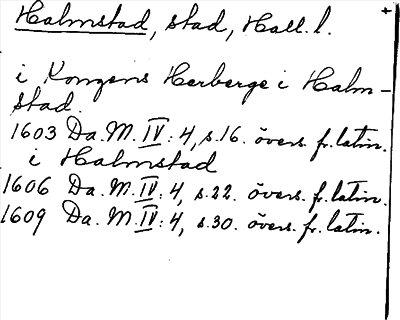 Halmstad, stad, Hall. l.
i Kongens Herberge i Halm-
stad.
1603 Da. M. IV: 4, s. 16. övers. fr. latin.
i Halmstad
1606 Da. M. IV: 4, s. 22. övers. fr. latin.
1609 Da. M. IV: 4, s. 30. övers. fr. latin.